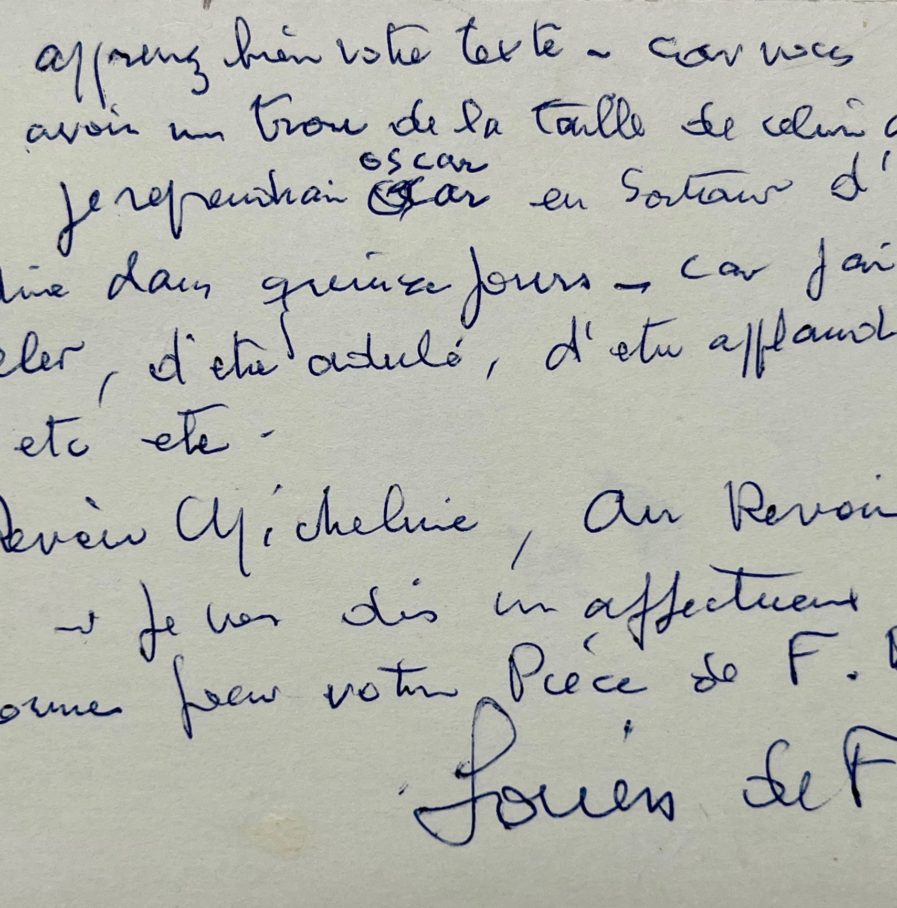 apprenez bien votre texte - car vous
avoir un trou de la taille de celui
oscar
je reprendrai en sortant d'
dans quinze jours - car j'ai
d'etre adulé, d'etre applaud
etc etc -
Revoir Micheline, Au Revoir
Je vous dis un affectueux
pour votre Pièce de F.
Louis de F